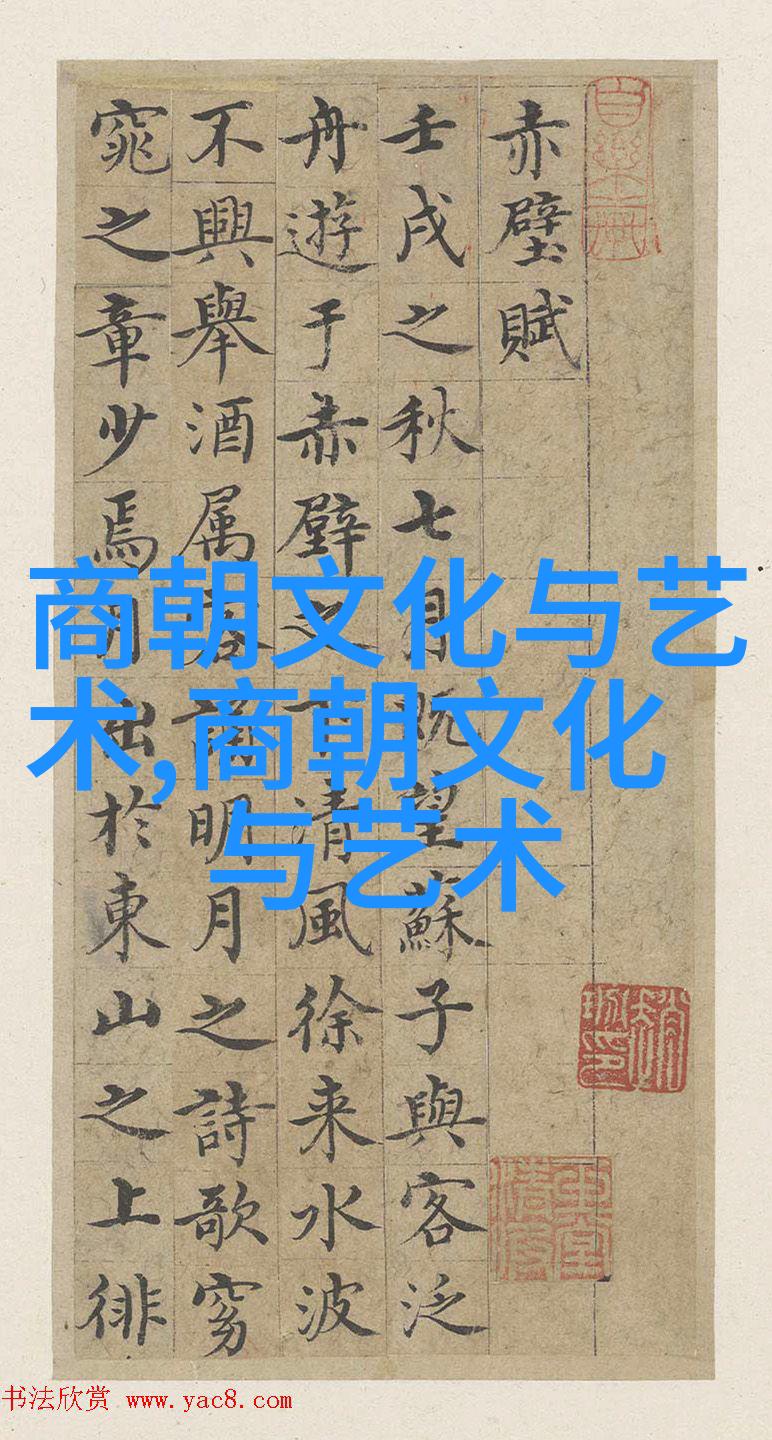 赤壁賦
壬戌之秋七月既望蘇子與客泛
舟遊于赤壁之下清風徐来水波
不興舉酒属客誦明月之詩歌窈
窕之章少焉月出於東山之上徘
商朝文化与艺
术,商朝文化
与艺术
书法欣赏 www.yac8.com